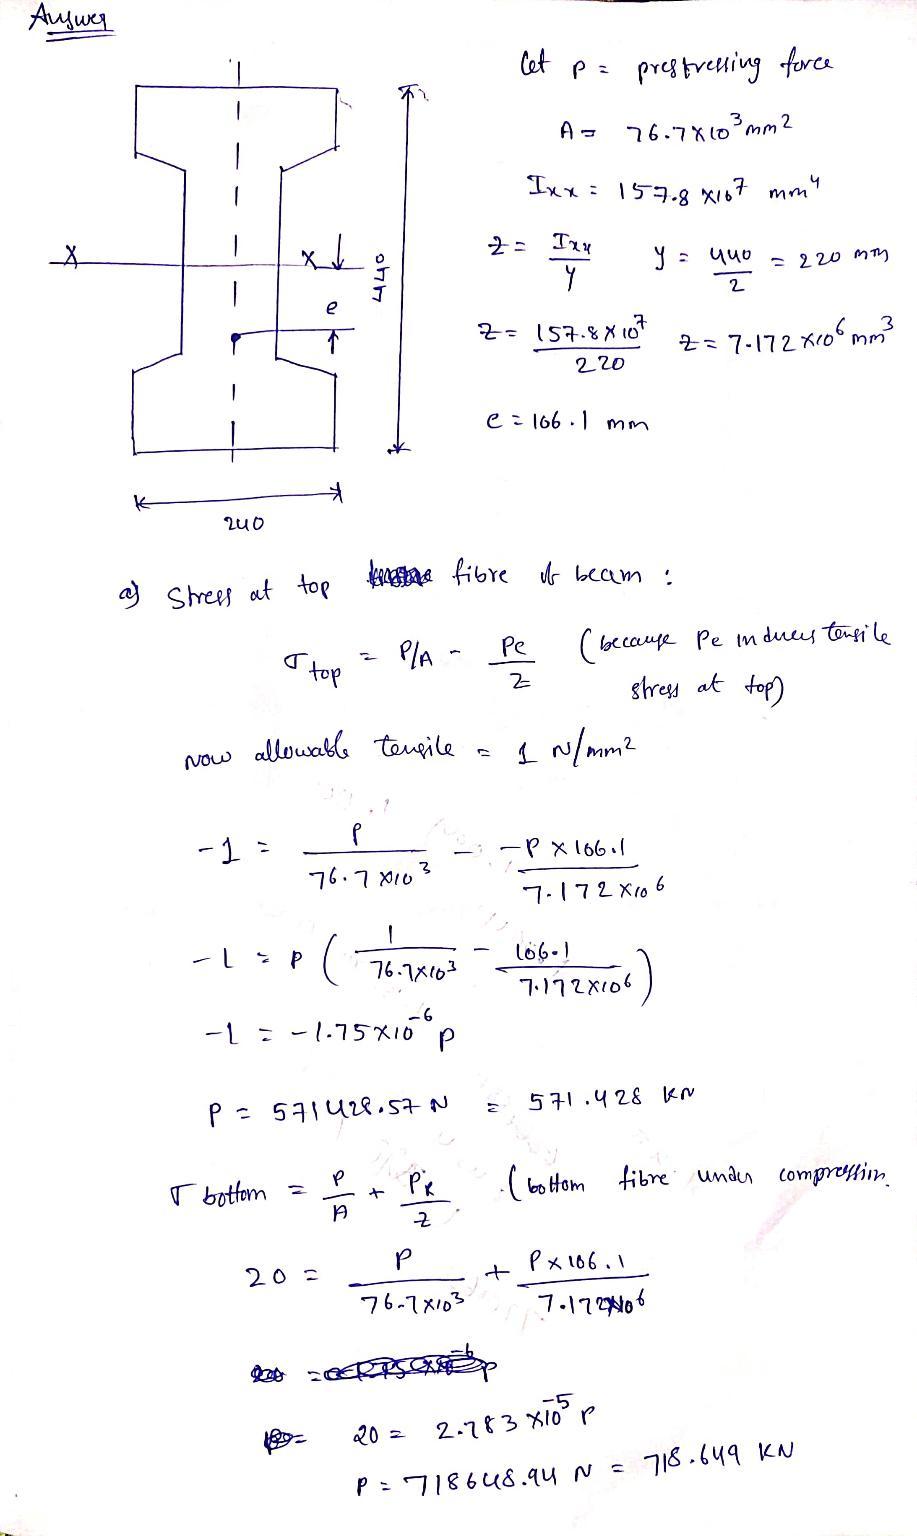 Answer
Let P = prestressing force
A = 76.7×10³ mm²
Ixx = 157.8×10⁷ mm⁴
z = Ixx/y y = 440/2 = 220 mm
z = 157.8×10⁷/220 z = 7.172×10⁶ mm³
e = 106.1 mm
x x
e
440
240
a) Stress at top fibre of beam :
σ top = P/A - Pe/z (because Pe induces tensile
stress at top)
Now allowable tensile = 1 N/mm²
-1 = P/76.7×10³ - -P×106.1/7.172×10⁶
-1 = P (1/76.7×10³ - 106.1/7.172×10⁶)
-1 = -1.75×10⁻⁶ P
P = 571428.57 N = 571.428 KN
σ bottom = P/A + Pe/z (bottom fibre under compression.
20 = P/76.7×10³ + P×106.1/7.172×10⁶
20 = 2.783×10⁻⁵ P
P = 718648.94 N = 718.649 KN